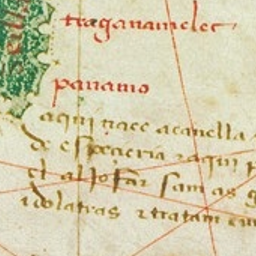 traganamelec
panamo
aqui nace acanella
de especieria aqui p
el aljofar sam as g
idolatras tratam cum